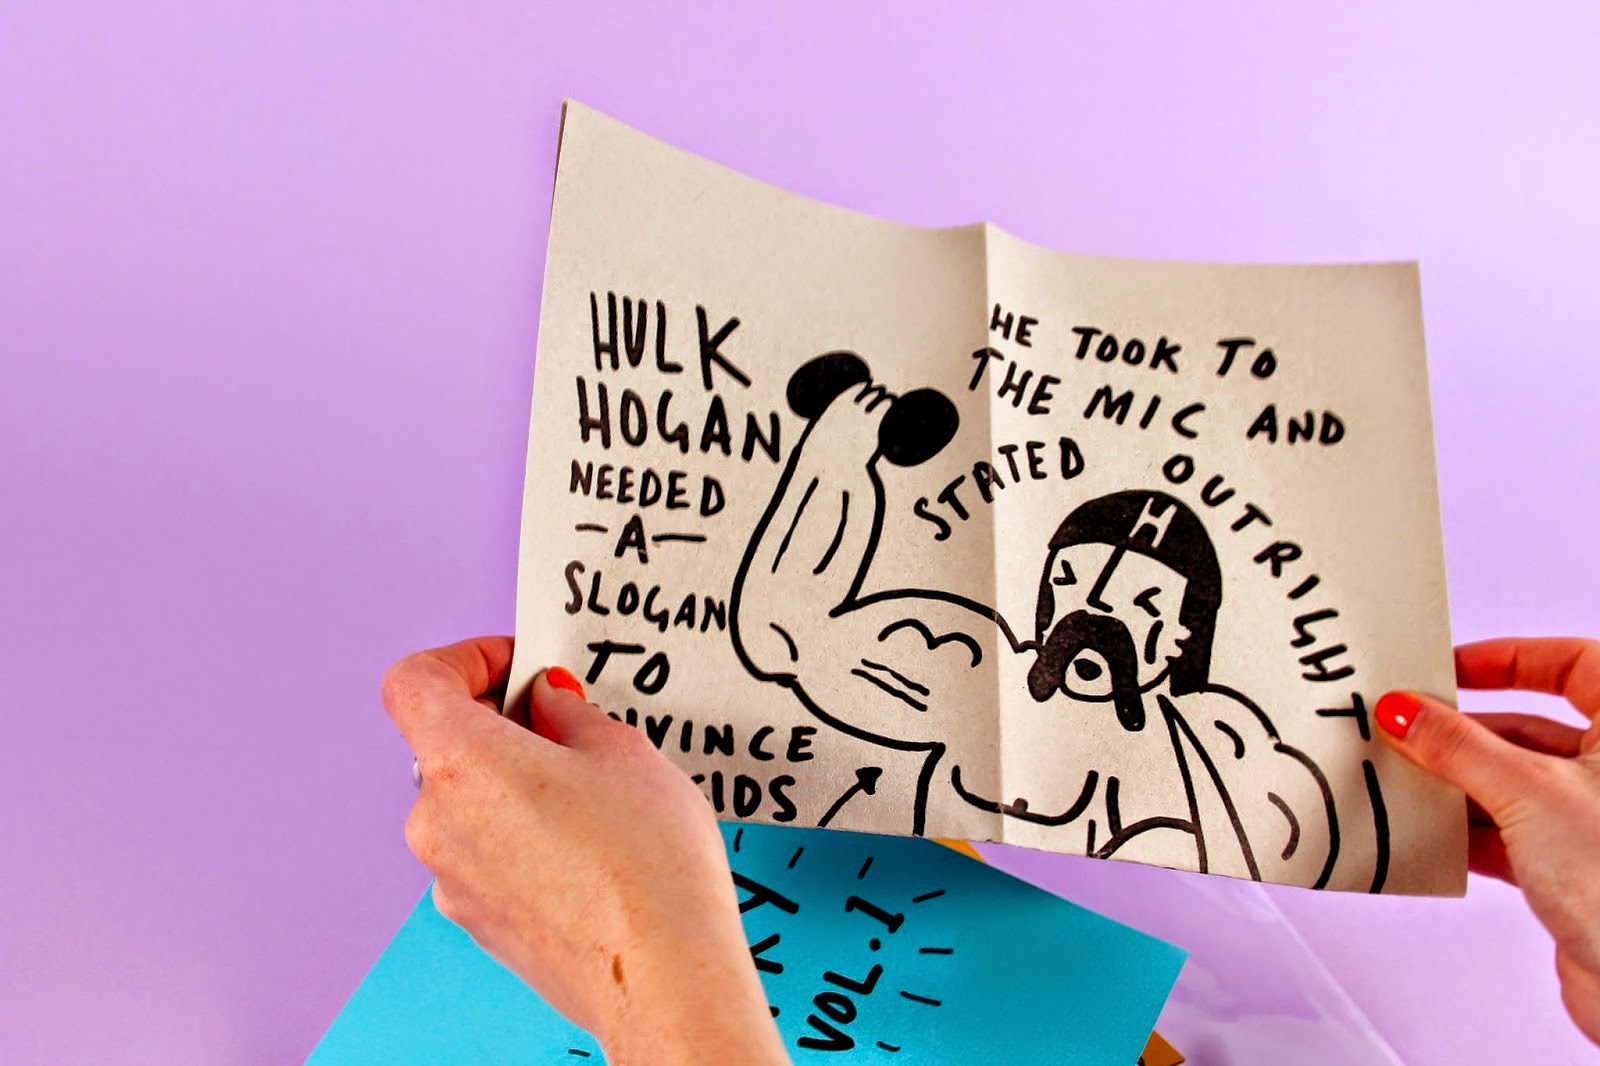 HULK
HOGAN
NEEDED
-A-
SLOGAN
TO
HE TOOK TO
THE MIC AND
STATED OUTRIGHT
H
VOL.1